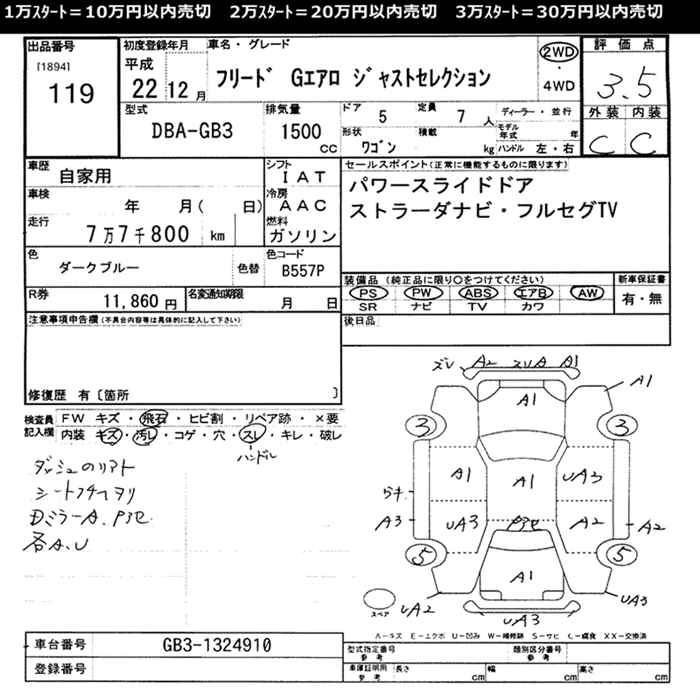 1万ｽﾀｰﾄ＝10万円以内売切　2万ｽﾀｰﾄ＝20万円以内売切　3万ｽﾀｰﾄ＝30万円以内売切
出品番号
[1894]
119
初度登録年月
平成
22 12 月
車名・グレード
フリード Gエアロ ジャストセレクション
2WD
・
4WD
評価点
3.5
外装 内装
C C
型式
DBA-GB3
排気量
1500
cc
ドア 5
定員 7 人
形状 ワゴン
積載 kg
ディーラー・並行
モデル年式 年
ハンドル 左・右
車歴 自家用
車検 年 月( 日)
走行 7万7千800 km
シフト
IAT
冷房
AAC
燃料
ガソリン
セールスポイント(正常に機能するものに限ります)
パワースライドドア
ストラーダナビ・フルセグTV
色 ダークブルー 色替
色コード
B557P
R券 11,860 円
名変通知期限 月 日
装備品 (純正品に限り○をつけてください)
PS PW ABS エアB AW
SR ナビ TV カワ
新車保証書
有・無
注意事項申告欄(不具合内容等は具体的に記入して下さい)
後日品
修復歴 有〔箇所 〕
検査員記入欄
FW キズ・飛石・ヒビ割・リペア跡・×要
内装 キズ・汚レ・コゲ・穴・スレ・キレ・破レ
ハンドル
シートフチヘヨリ
各A.U
ズレ A2 スリA A1
A1
A1
3 3
A1 A1 UA3
A3 UA3 P3セ A2 A2
5 5
A1
スペア
UA2 UA3 UA3
A－キズ E－エクボ U－凹み W－補修跡 S－サビ C－腐食 XX－交換済
車台番号 GB3-1324910
登録番号
型式指定番号
参考
類別区分番号
参考
車庫証明用
参考
長さ cm 幅 cm 高さ cm